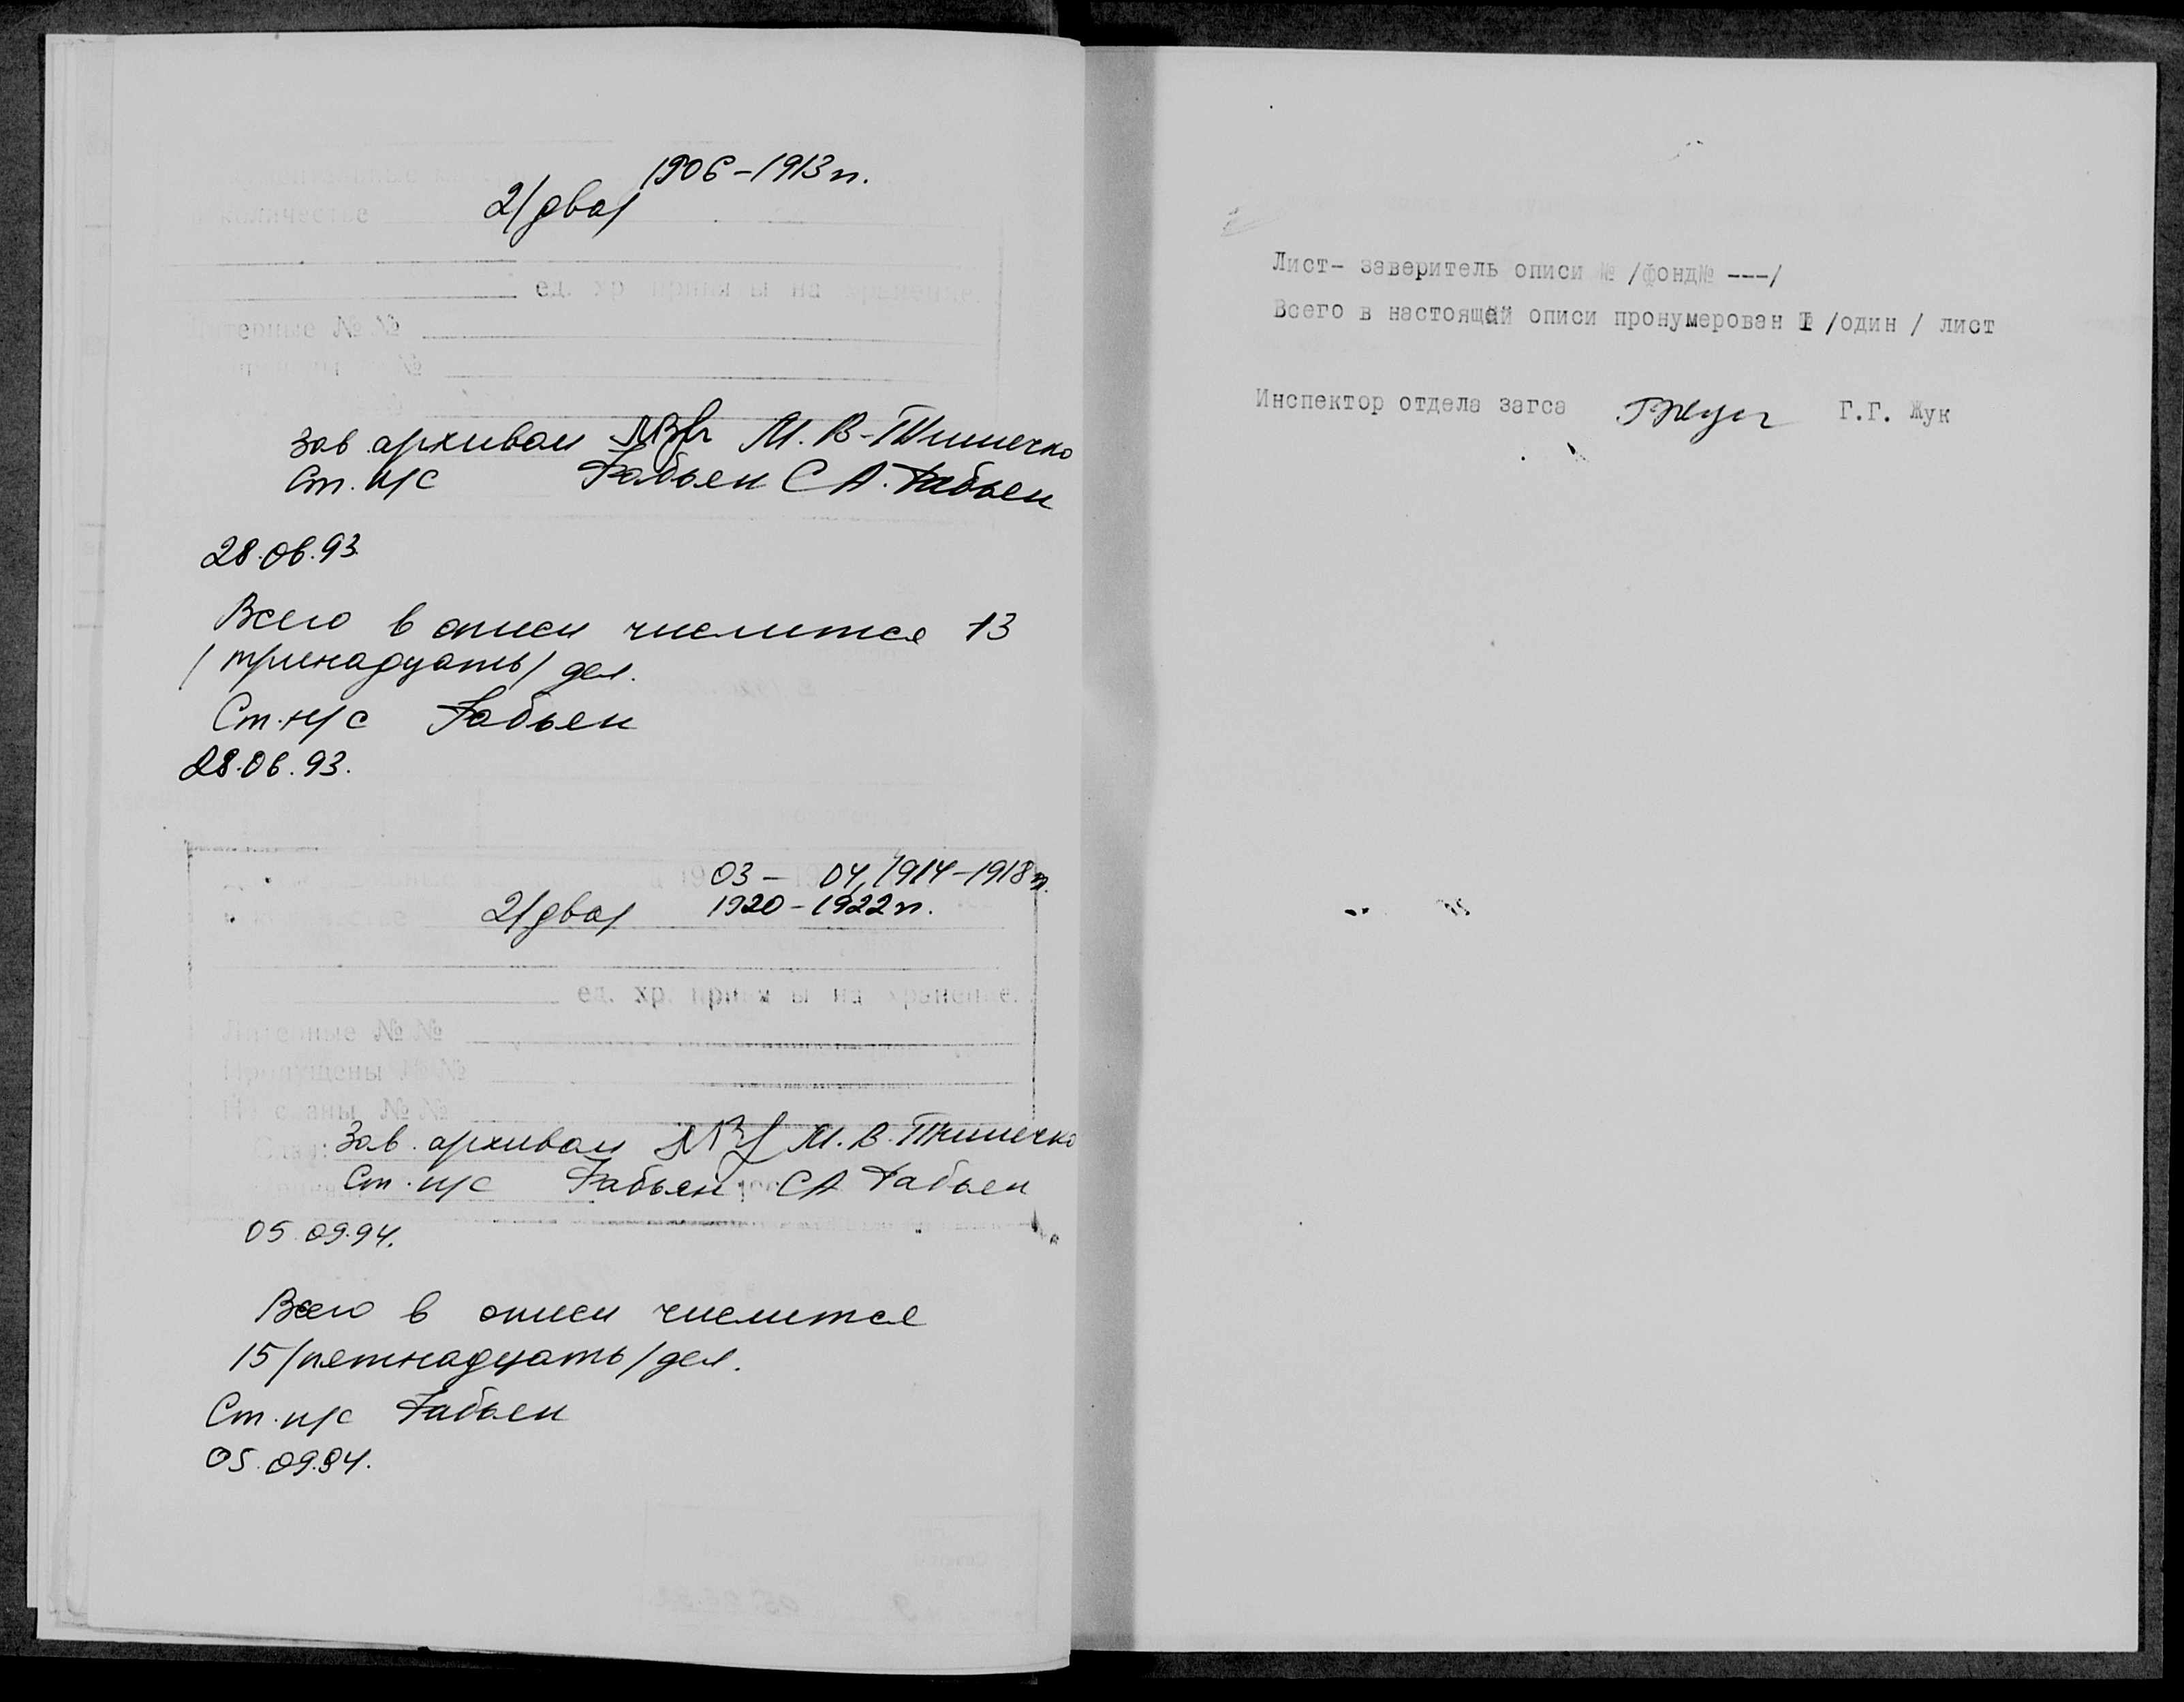 1906-1913гг.
в количестве 2/два/
ед. хр. приняты на хранение.
Литерные № №
№
Зав. архивом М. В.
Ст. н/с Бабьен С А. Бабьен
28.06.93
Всего в описи числится 13
/тринадцать/ дел.
Ст. н/с Бабьен
28.06.93.
03 - 04, 1914-1918гг.
2/два/ 1920-1922гг.
ед. хр. приняты на хранение.
Литерные № №
Пропущены № №
№ №
Зав. архивом М. В.
Ст. н/с Бабьен С А Бабьен
05.09.94.
Всего в описи числится
15/пятнадцать/дел.
Ст. н/с Бабьен
05.09.94.
Лист- заверитель описи № /фонд№ ---/
Всего в настоящей описи пронумерован I /один / лист
Инспектор отдела загса ГЖук Г.Г. Жук